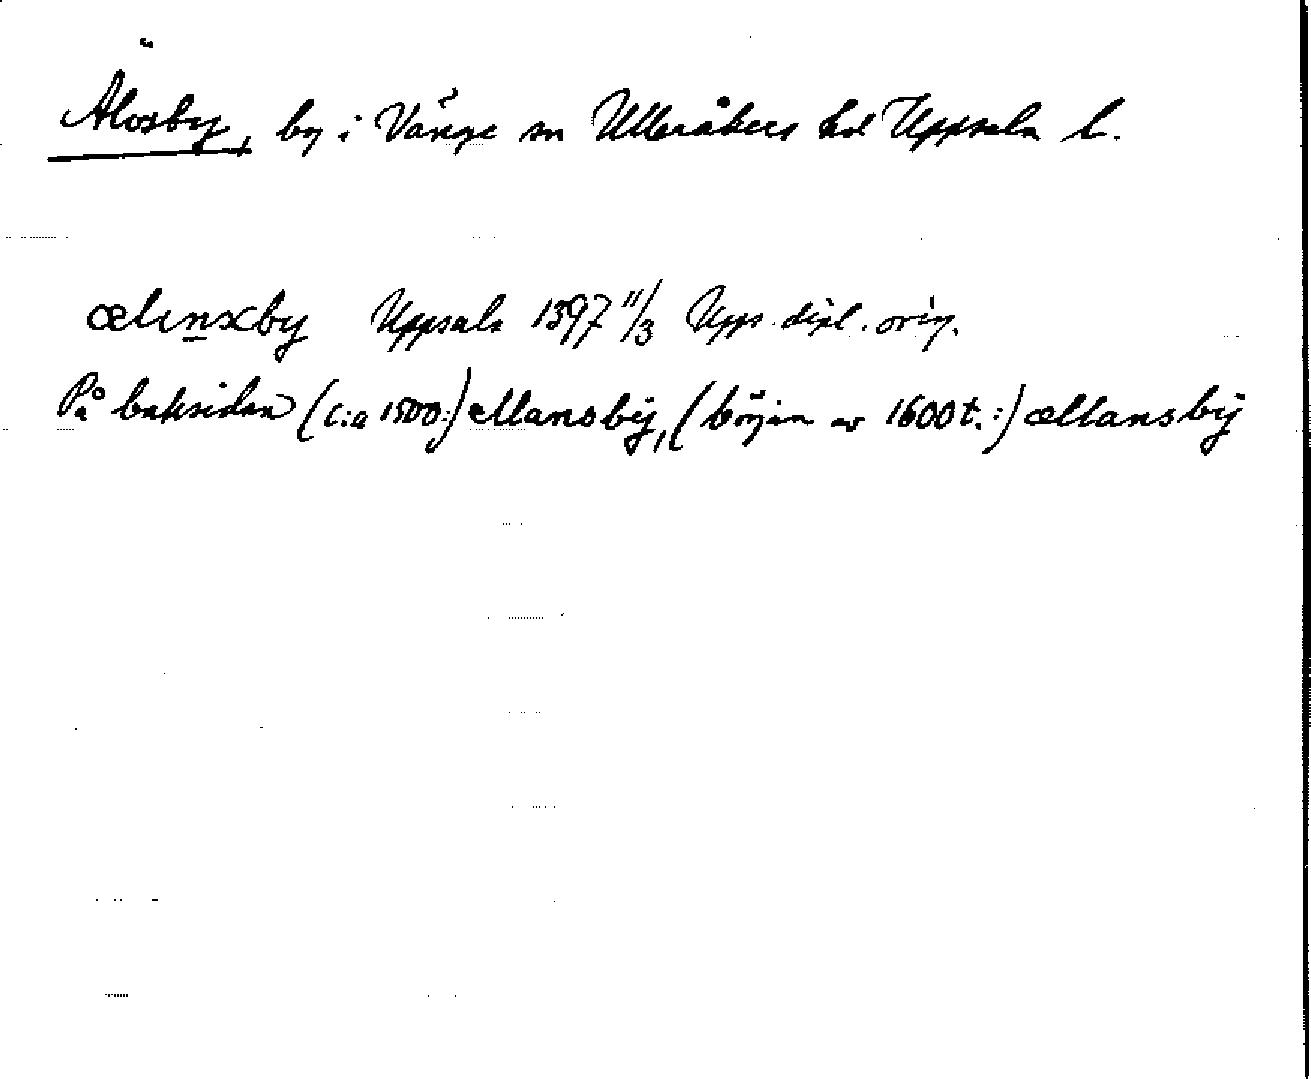 Älösby, by i Vänge sn Ulleråkers hd Uppsala l.
ælinxby Uppsala 1397 11/3 Upps. dipl. orig.
På baksidan (c:a 1500:) ællansbÿ, (början av 1600 t.:) ællansbÿ